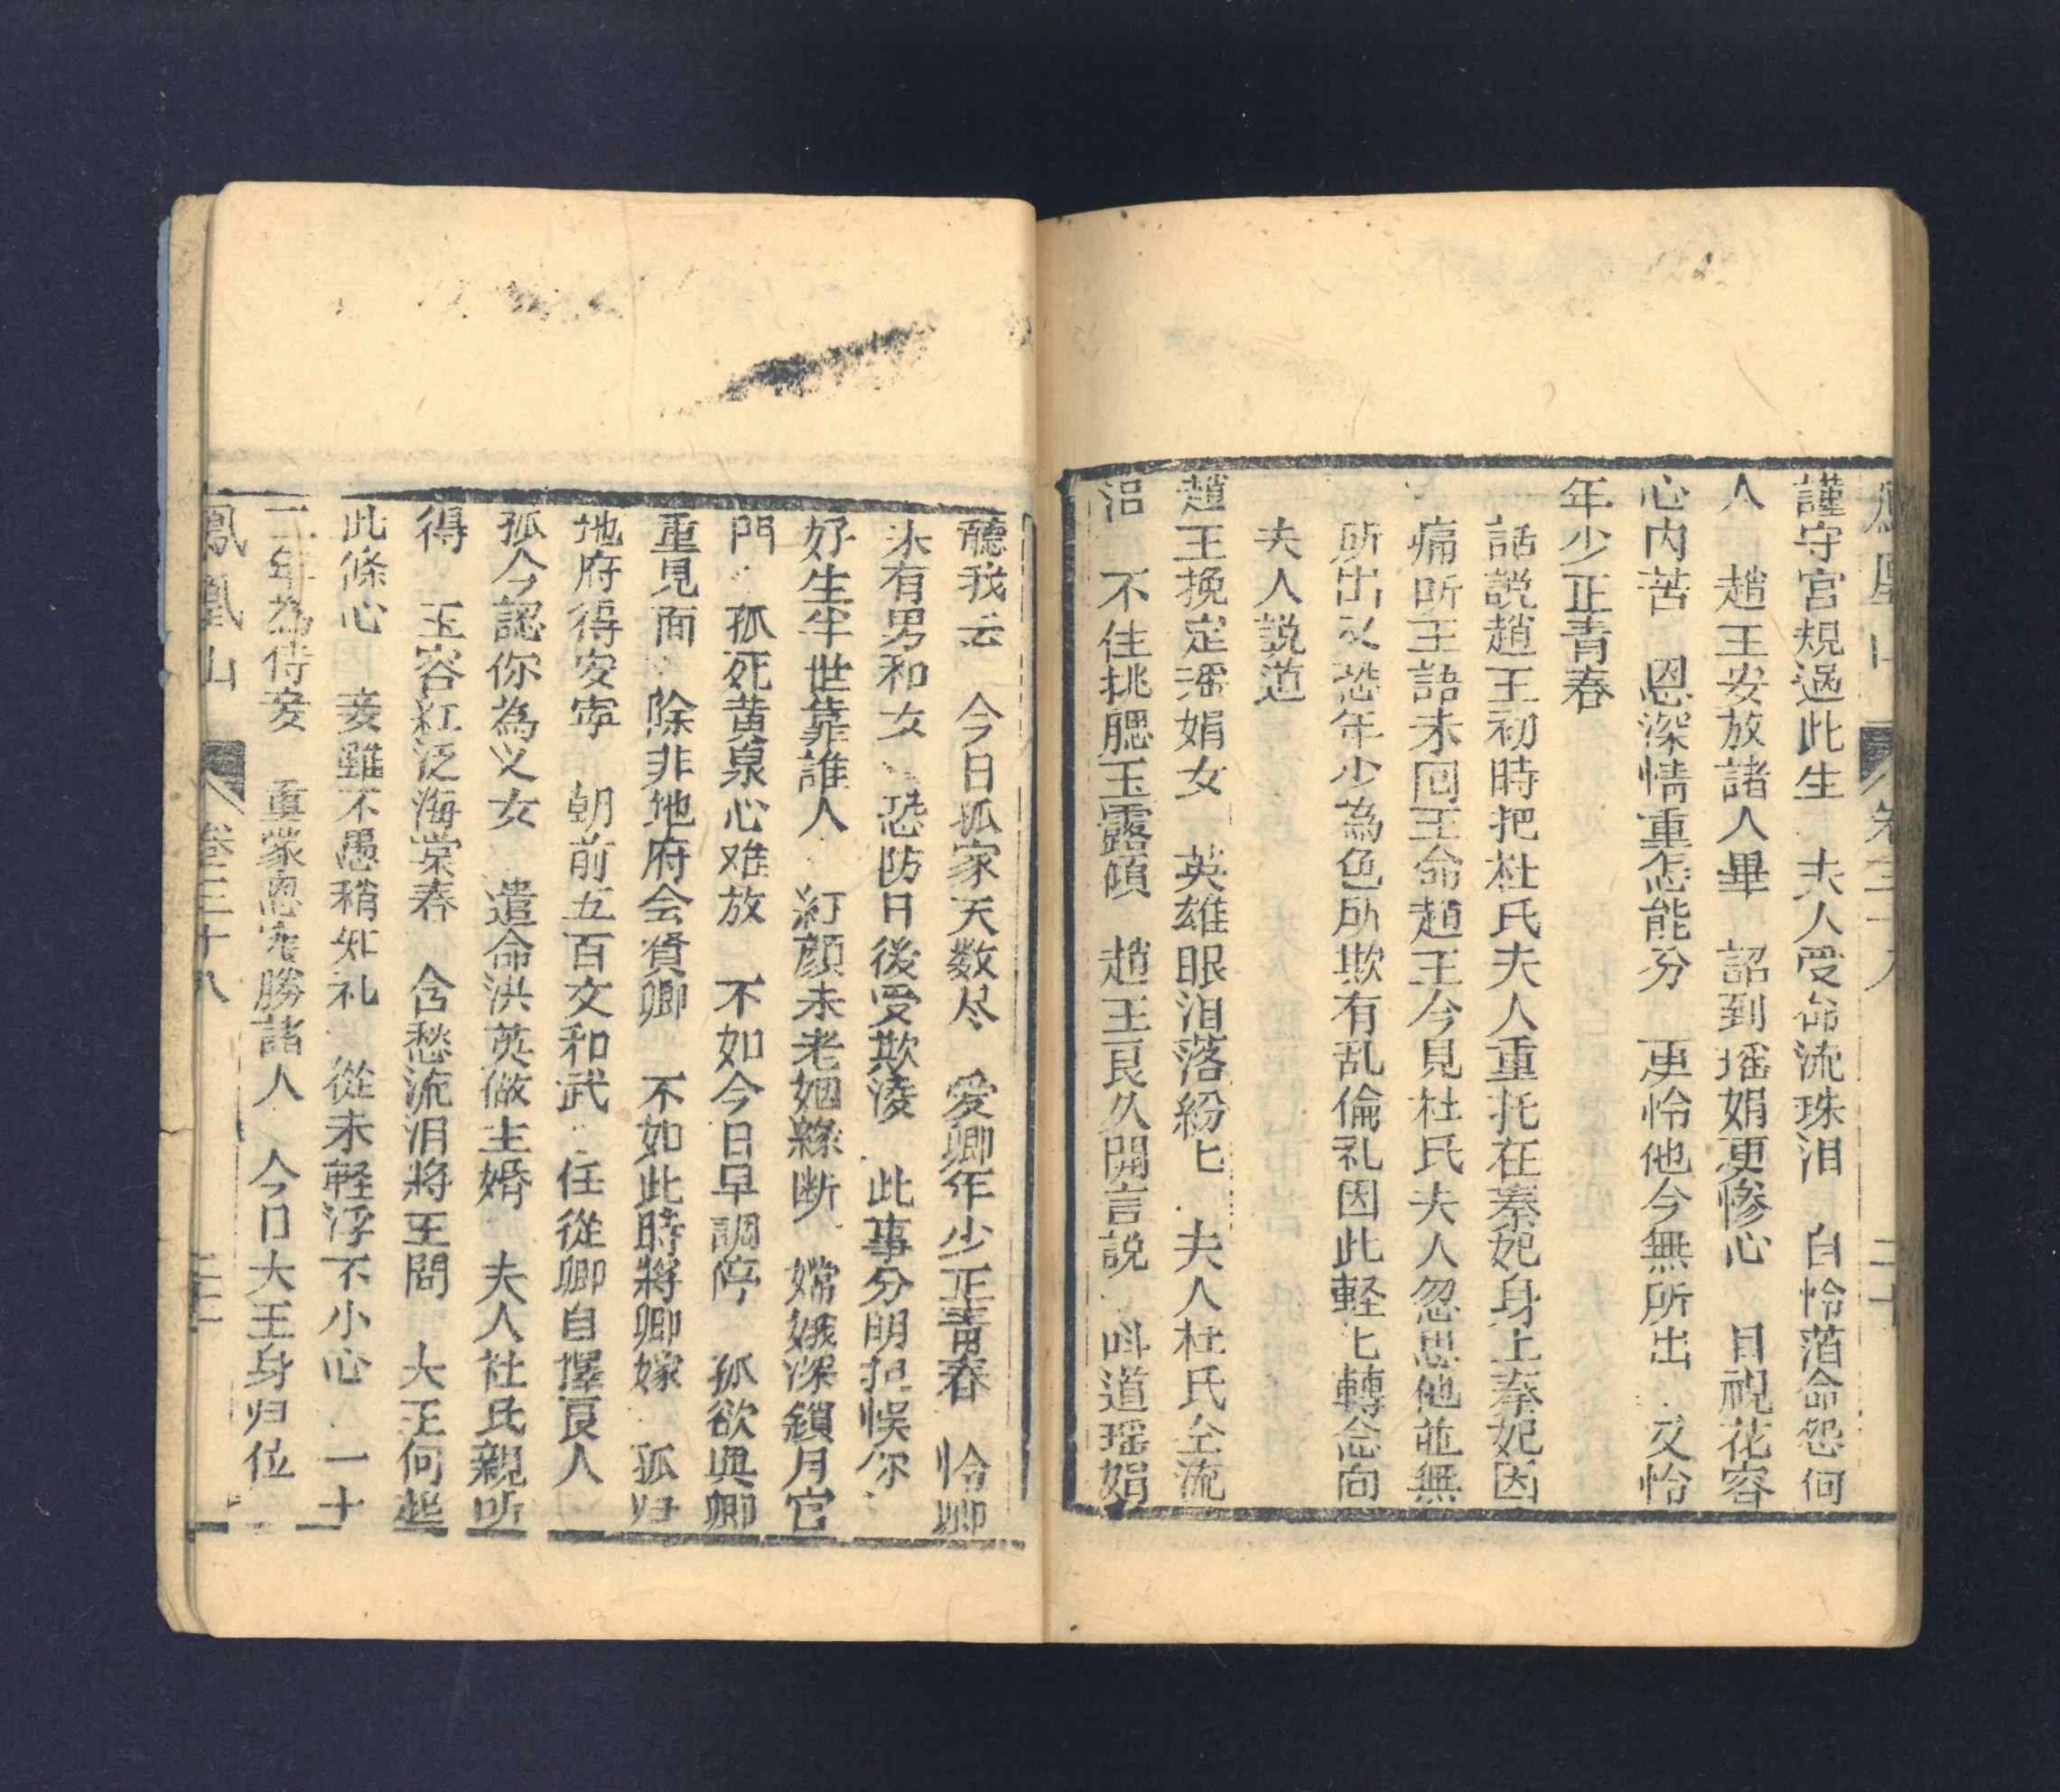 謹守宮規過此生　夫人受命流珠泪　自怜薄命怨何
人　趙王安放諸人畢　詔到瑶娟更慘心　目視花容
心内苦　恩深情重怎能分　更怜他今無所出　又怜
年少正青春
話説趙王初時把杜氏夫人重托在秦妃身上秦妃因
痛听王語未回王命趙王今見杜氏夫人忽思他並無
所出又恐年少為色所欺有乱倫礼因此輕匕轉念向
夫人説道
趙王挽定瑶娟女　英雄眼泪落紛匕　夫人杜氏全流
泪　不住挑腮玉露傾　趙王良久開言説　叫道瑶娟
聽我云　今日孤家天数尽　愛卿年少正青春　怜卿
未有男和女　恐防日後受欺凌　此事分明担悞你
好生半世靠誰人　紅顔未老姻緣断　嫦娥深鎖月宮
門　孤死黄泉心难放　不如今日早調停　孤欲與卿
重見面　除非地府会賢卿　不如此時將卿嫁　孤归
地府得安寧　朝前五百文和武　任從卿自擇良人
孤今認你為义女　遣命洪英做主婚　夫人社氏親听
得　玉容紅泛海棠春　含愁流泪將王問　大王何起
此條心　妾雖不愚稍知礼　從未輕浮不小心　一十
二年為侍妾　重蒙恩寵勝諸人　今日大王身归位
鳳凰山　卷三十八